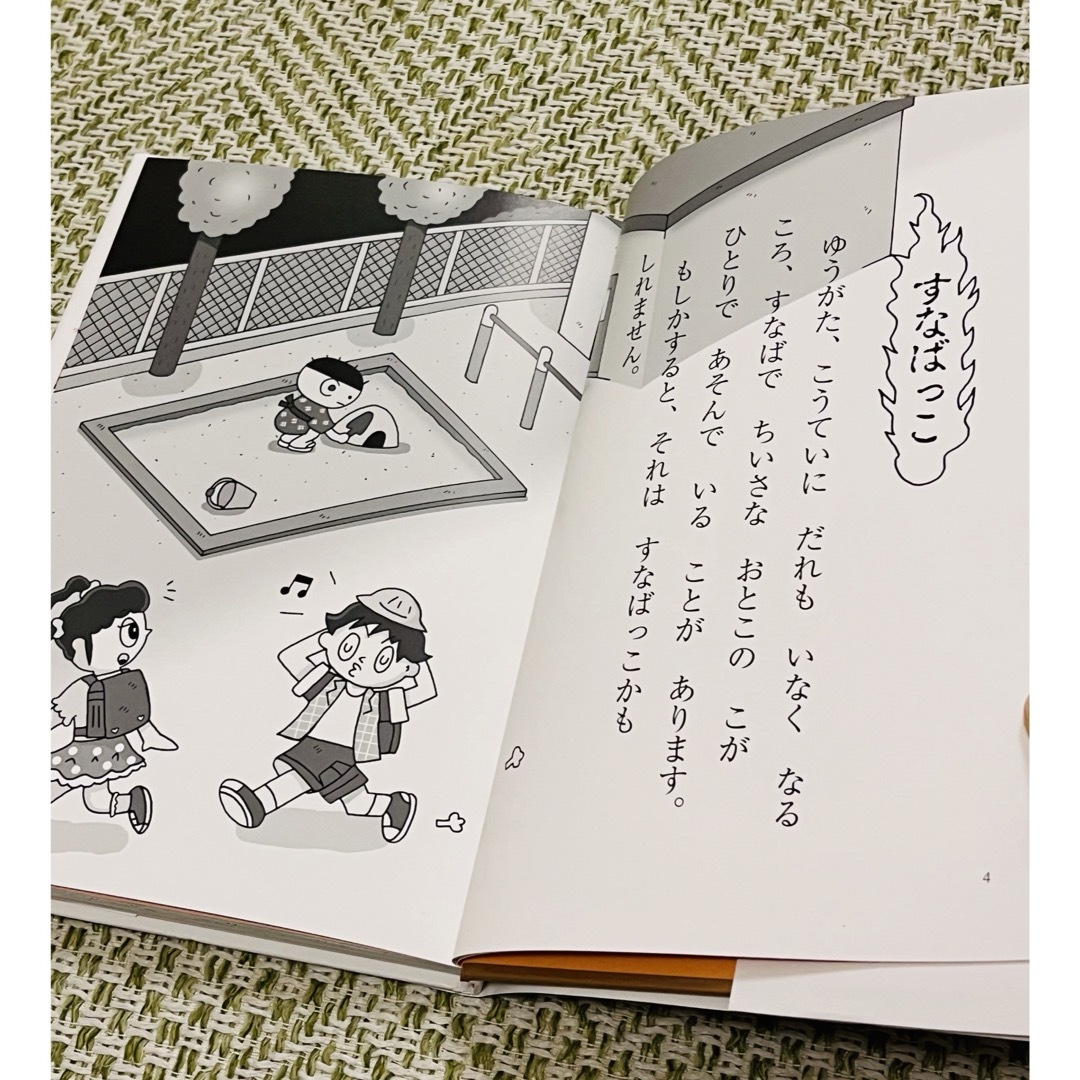 すなばっこ
ゆうがた、こうていに だれも いなく なる
ころ、すなばで ちいさな おとこの こが
ひとりで あそんで いる ことが あります。
もしかすると、それは すなばっこかも
しれません。
4